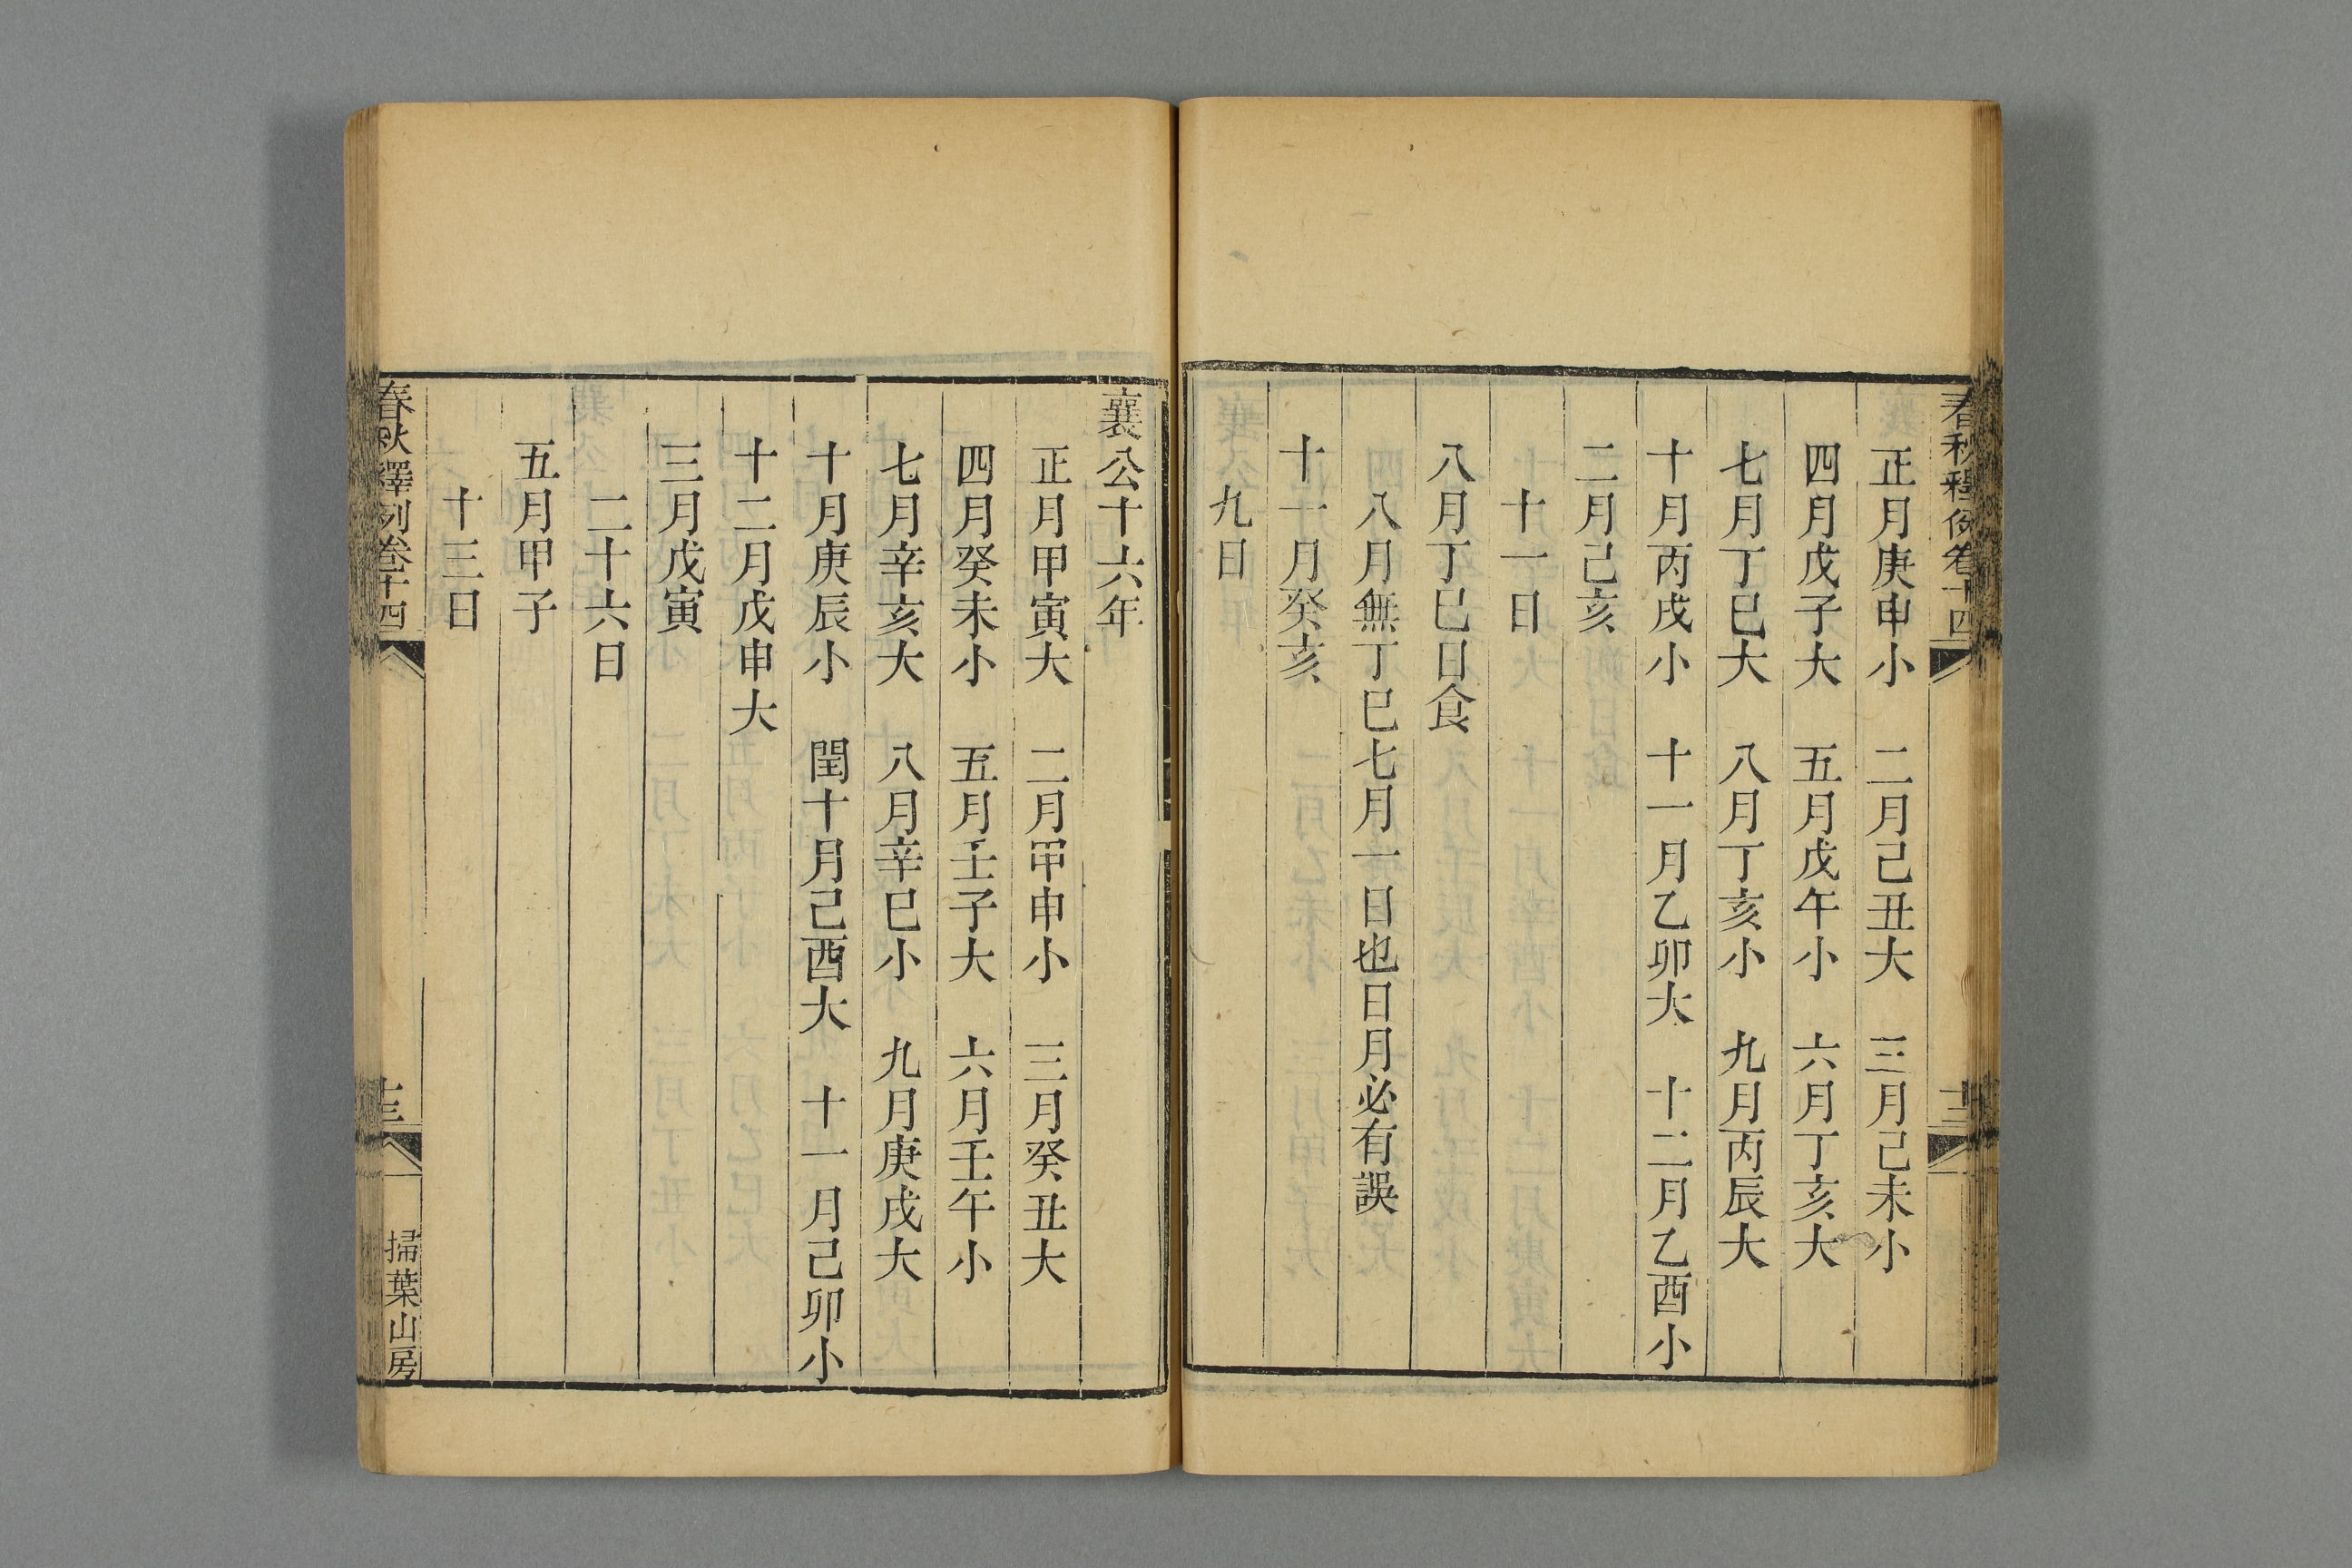 春秋釋例卷十四
十三
正月庚申小　二月己丑大　三月己未小
四月戊子大　五月戊午小　六月丁亥大
七月丁巳大　八月丁亥小　九月丙辰大
十月丙戌小　十一月乙卯大　十二月乙酉小
二月己亥
十一日
八月丁巳日食
八月無丁巳七月一日也日月必有誤
十一月癸亥
九日
襄公十六年
正月甲寅大　二月甲申小　三月癸丑大
四月癸未小　五月壬子大　六月壬午小
七月辛亥大　八月辛巳小　九月庚戌大
十月庚辰小　閏十月己酉大　十一月己卯小
十二月戊申大
三月戊寅
二十六日
五月甲子
十三日
春秋釋例卷十四
十三
掃葉山房